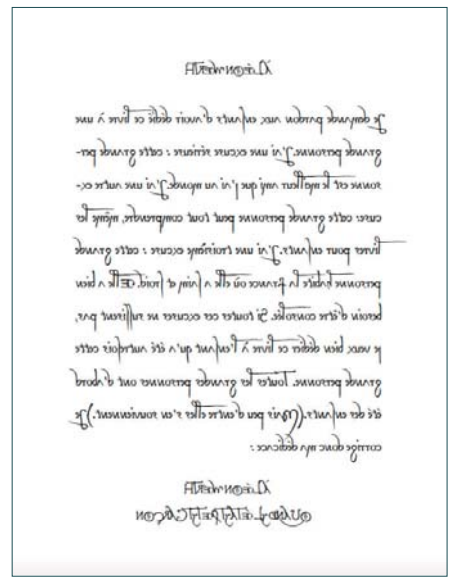 À Léon Werth
Je demande pardon aux enfants d'avoir dédié ce livre à une
grande personne. J'ai une excuse sérieuse : cette grande per-
sonne est le meilleur ami que j'ai au monde. J'ai une autre ex-
cuse: cette grande personne peut tout comprendre, même les
livres pour enfants. J'ai une troisième excuse : cette grande
personne habite la France où elle a faim et froid. Elle a bien
besoin d'être consolée. Si toutes ces excuses ne suffisent pas,
je veux bien dédier ce livre à l'enfant qu'a été autrefois cette
grande personne. Toutes les grandes personnes ont d'abord
été des enfants. (Mais peu d'entre elles s'en souviennent.) Je
corrige donc ma dédicace :
À Léon Werth
quand il était petit garçon